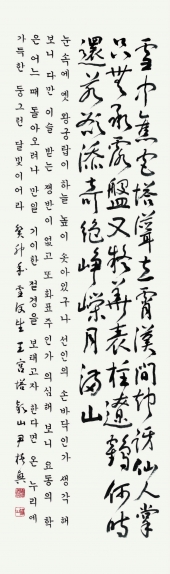 雪中蕉宮塔淩立霄漢間却訝仙人掌
只無承露盤又疑華表柱遼鶴何時
還若欲添奇絶崢嶸月滿山
눈 속에 옛 왕궁탑이 하늘 높이 솟아있구나 선인의 손바닥인가 생각 해
보니 다만 이슬 받는 쟁반이 없고 또 화표주 인가 의심해 보니 요동의 학
은 어느 때 돌아오려나 만일 기이한 절경을 보태고자 한다면 온 누리에
가득한 둥그런 달빛이어라 癸卯年 雪後望王宮塔